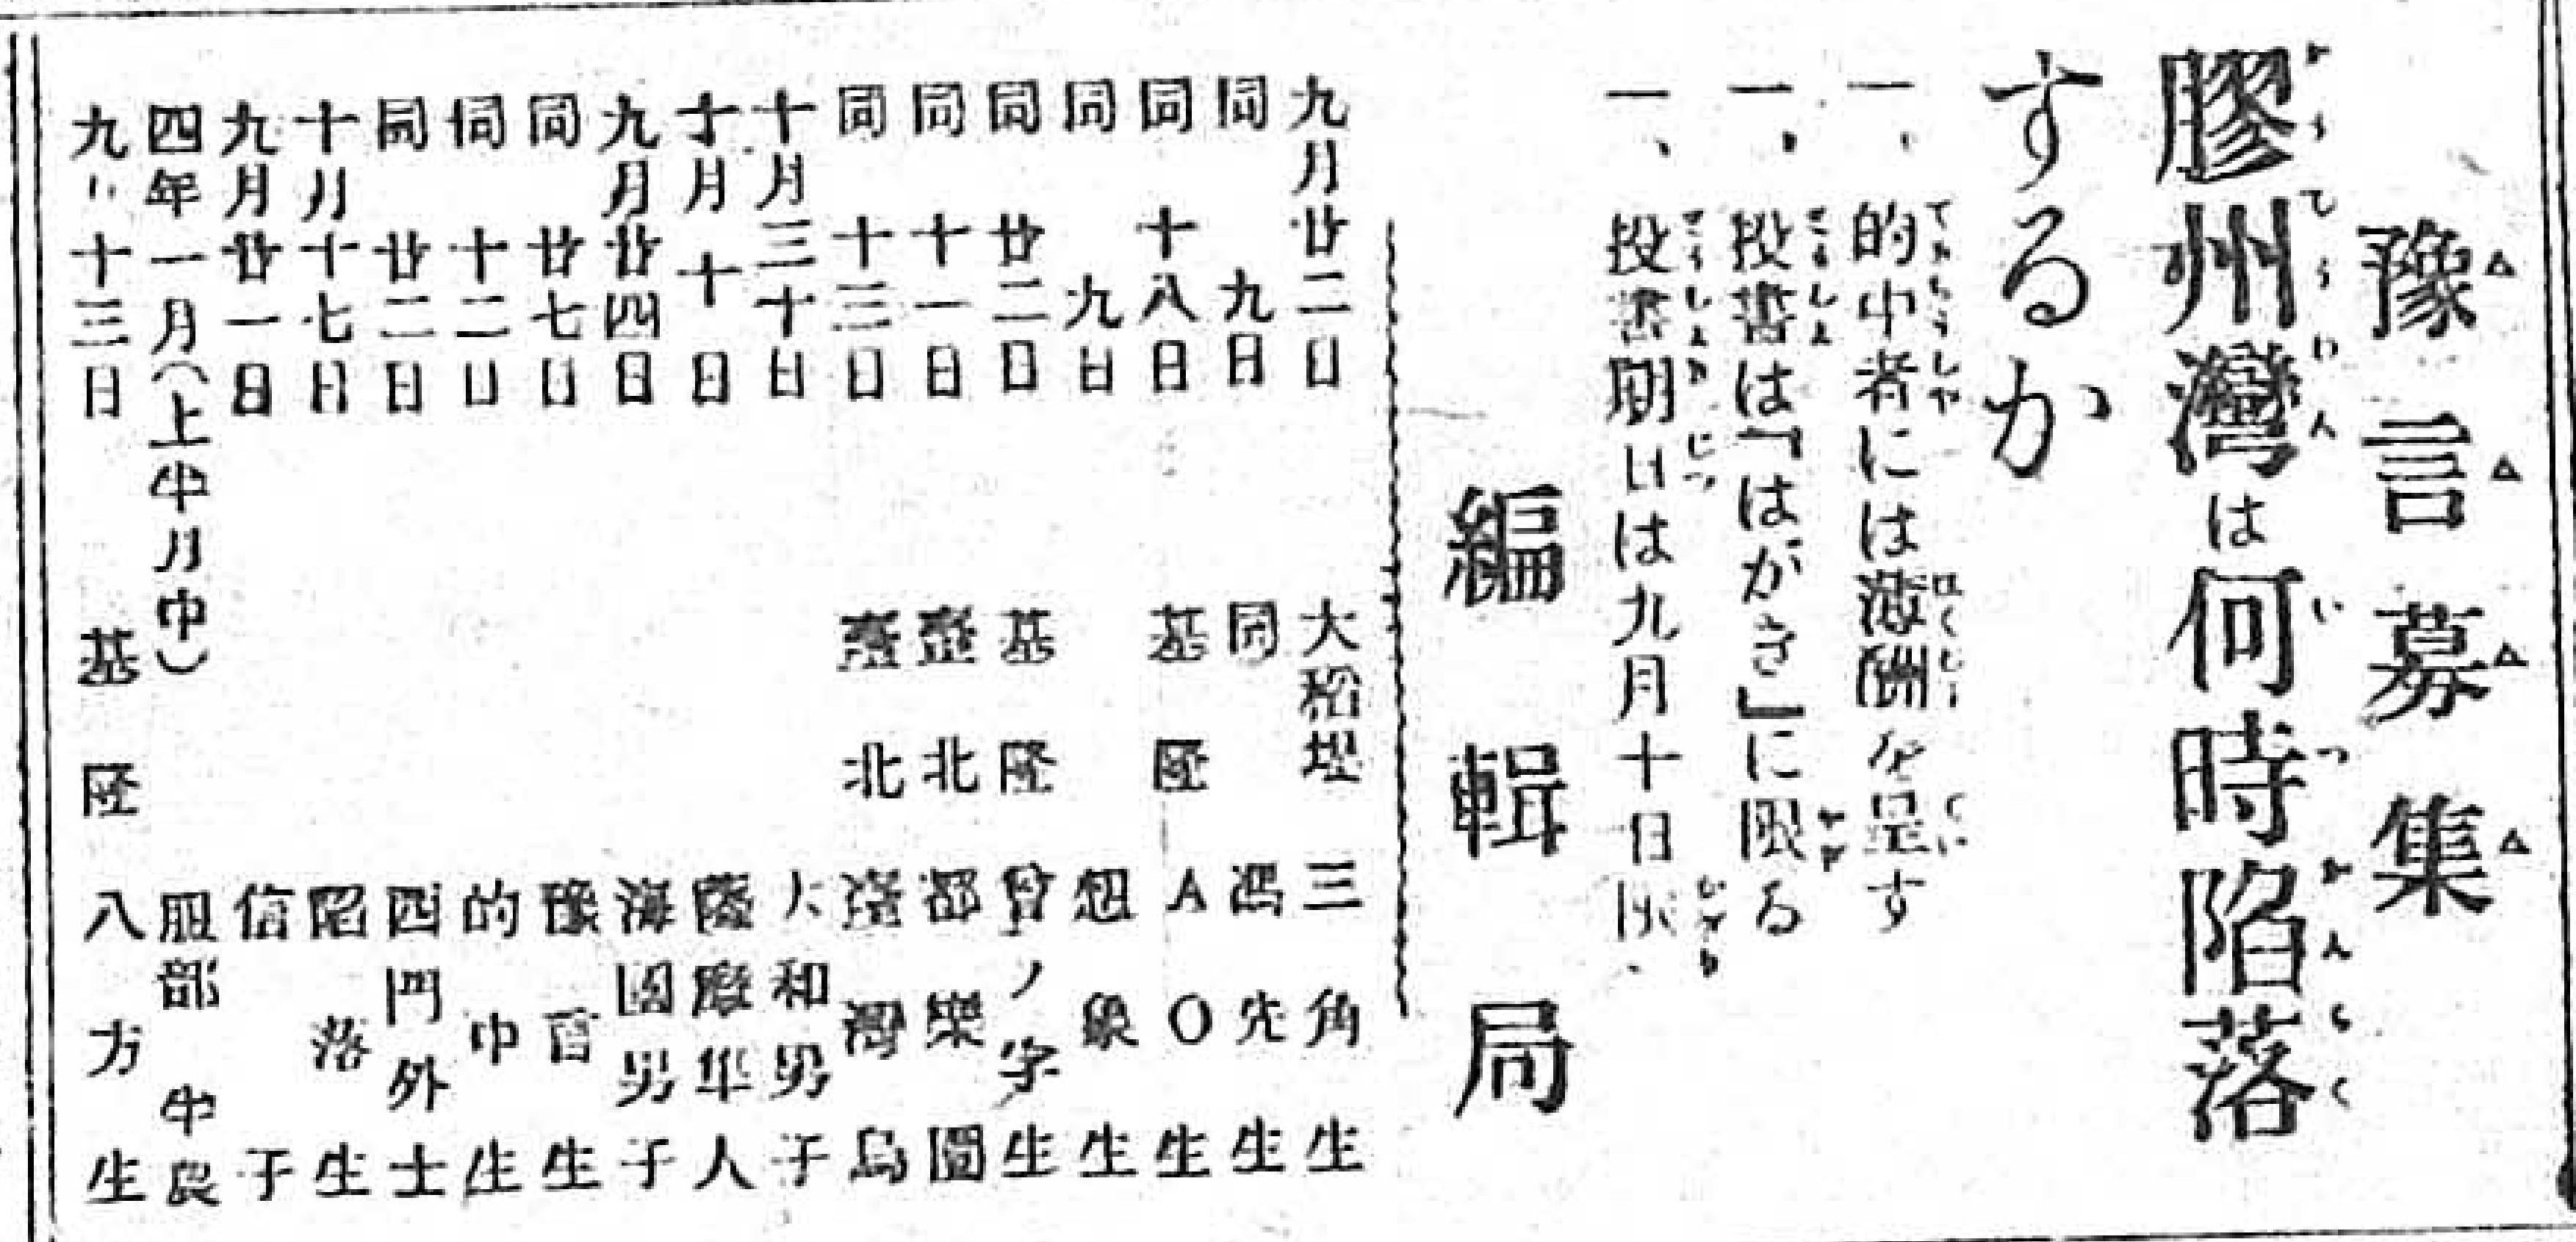 豫言募集
膠州灣は何時陷落
するか
一、的中者には薄酬を呈す
一、投書は「はがき」に限る
一、投書期日は九月十日限、
編輯局
九月廿二日 大稻埕 三角生
同 九日 同 馮先生
同 十八日 基隆 AO生
同 九日 想象生
同 廿二日 基隆 曾ノ字生
同 十一日 臺北 都樂園
同 十三日 臺北 臺灣烏
十月三十日 大和男子
十月十日 陸廢隼人
九月廿四日 海國男子
同 廿七日 豫言生
同 十二日 的中生
同 廿二日 西門外士
十月十七日 陷落生
九月廿一日 信子
四年一月(上半月中) 服部半良
九〃十三日 基隆 八方生